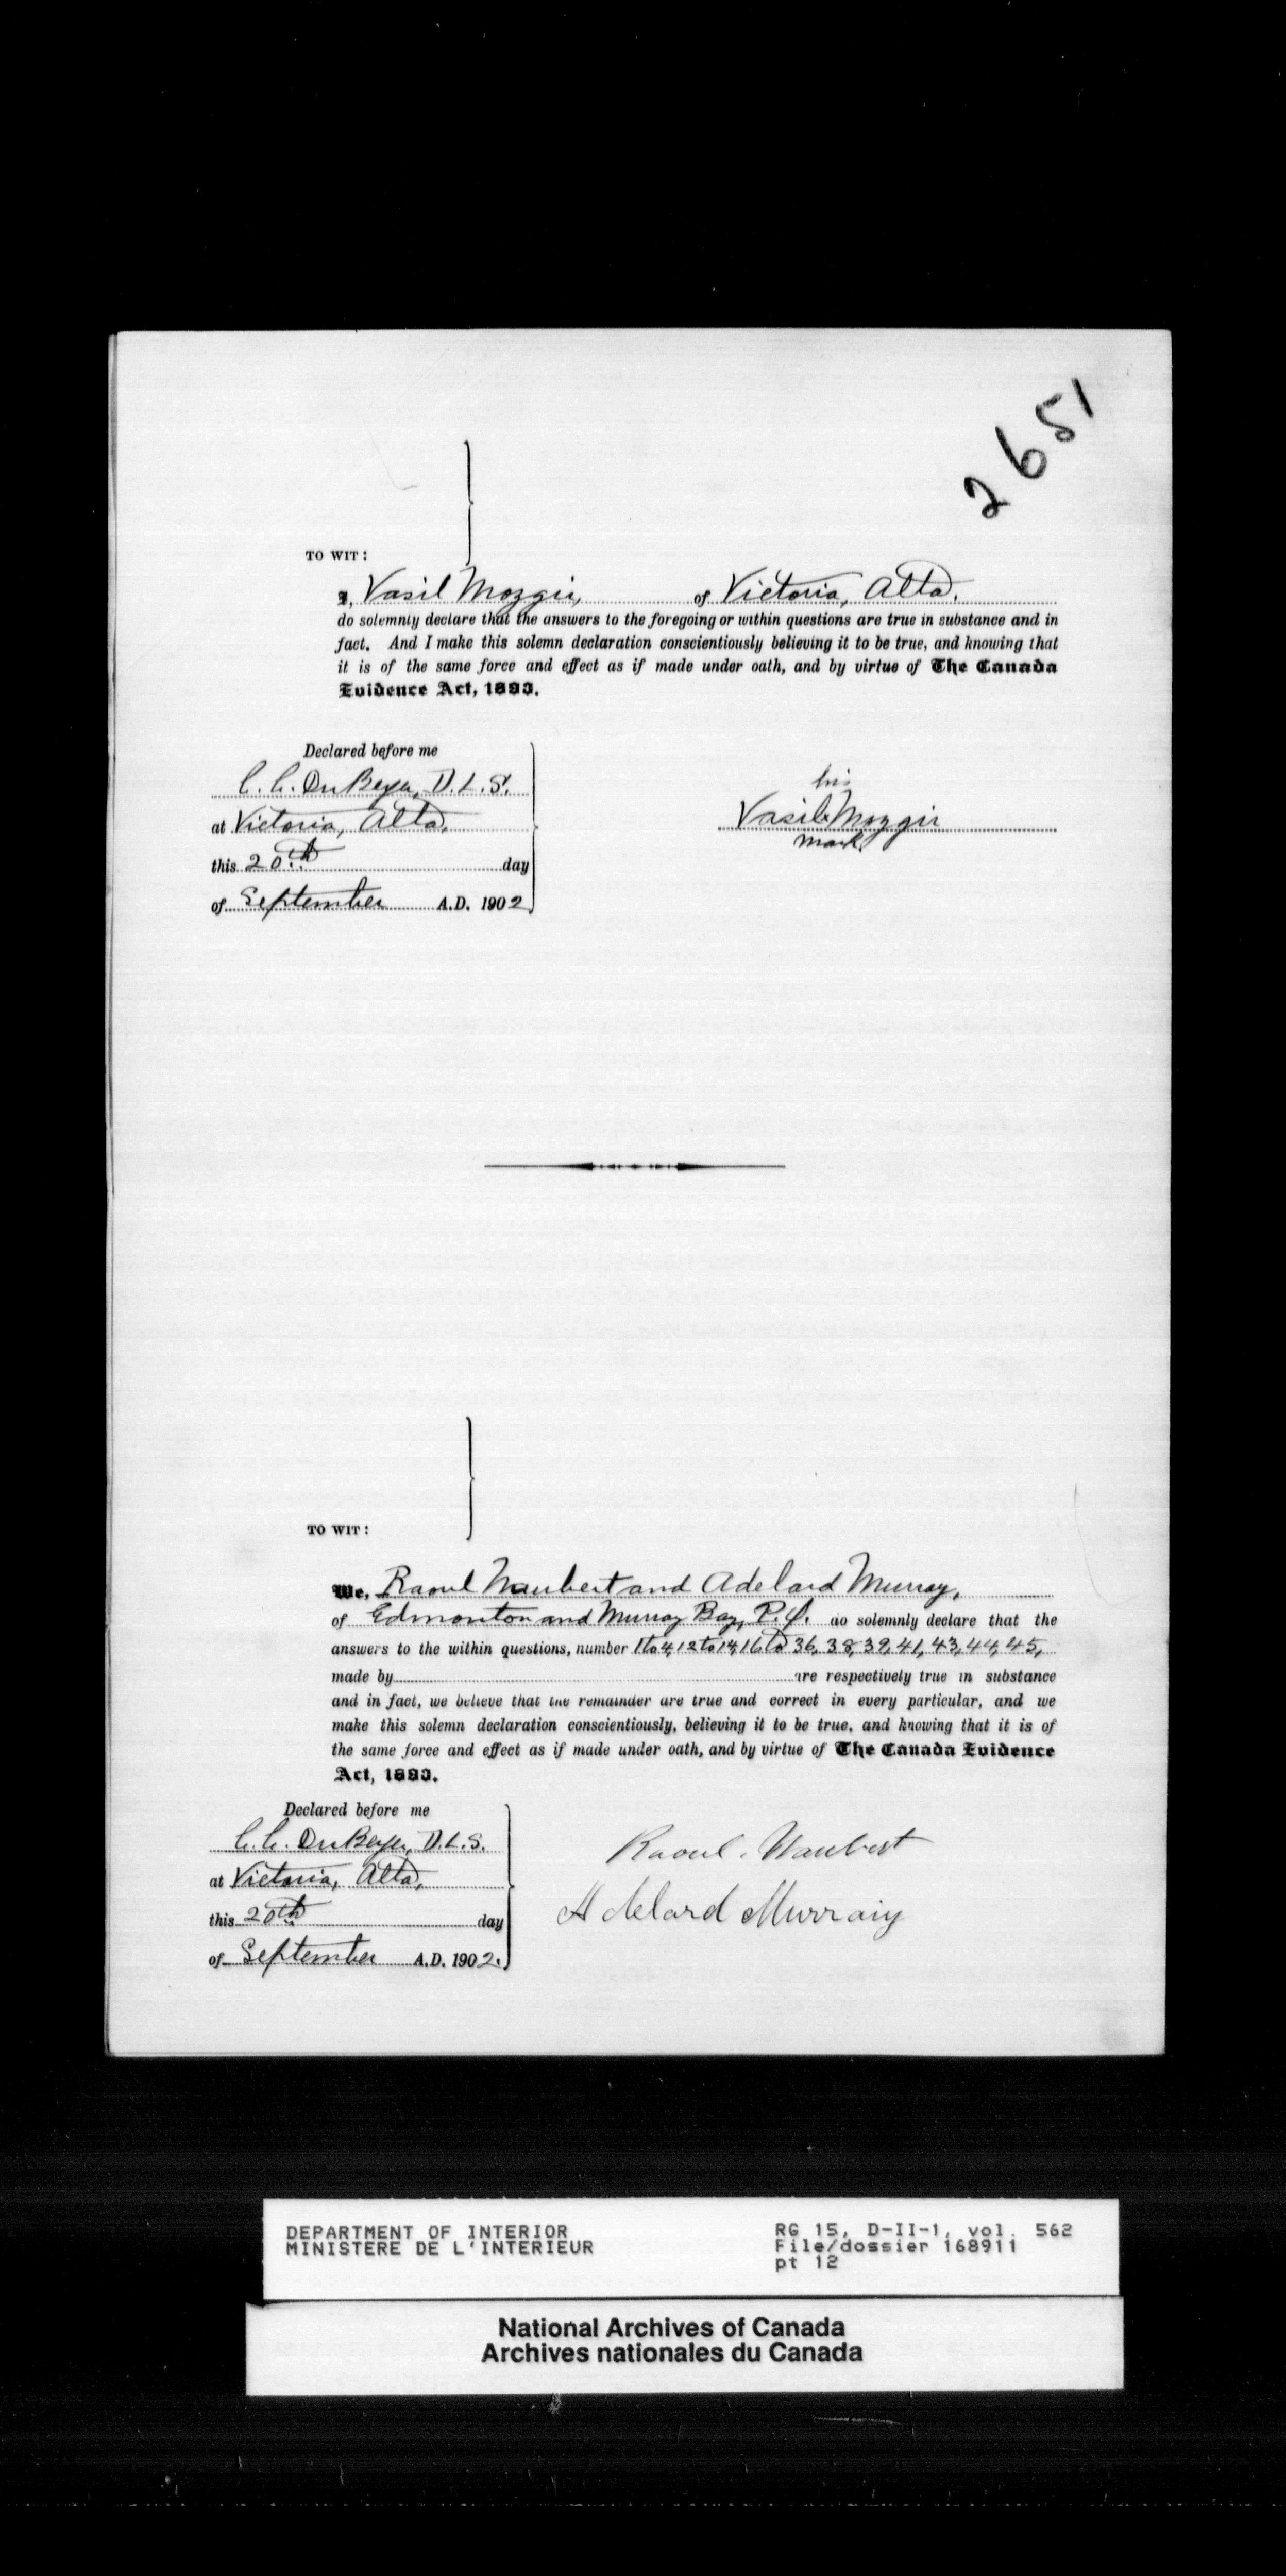 2651
TO WIT:
I, Vasil Mozgir, of Victoria, Alta.
do solemnly declare that the answers to the foregoing or within questions are true in substance and in
fact. And I make this solemn declaration conscientiously believing it to be true, and knowing that
it is of the same force and effect as if made under oath, and by virtue of The Canada
Evidence Act, 1893.
Declared before me
C. C. DuBerger, D.L.S.
at Victoria, Alta,
this 20th day
of September A.D. 1902
his
Vasil Mozgir
mark
TO WIT:
We, Raoul Naubert and Adelard Murray,
of Edmonton and Murray Bay, P.Q. do solemnly declare that the
answers to the within questions, number 1 to 4, 12 to 14, 16 to 36, 38, 39, 41, 43, 44, 45,
made by are respectively true in substance
and in fact, we believe that the remainder are true and correct in every particular, and we
make this solemn declaration conscientiously, believing it to be true, and knowing that it is of
the same force and effect as if made under oath, and by virtue of The Canada Evidence
Act, 1893.
Declared before me
C. C. DuBerger, D.L.S.
at Victoria, Alta,
this 20th day
of September A.D. 1902.
Raoul. Naubert
Adelard Murray
DEPARTMENT OF INTERIOR
MINISTERE DE L'INTERIEUR
RG 15, D-II-1, vol. 562
File/dossier 168911
pt 12
National Archives of Canada
Archives nationales du Canada